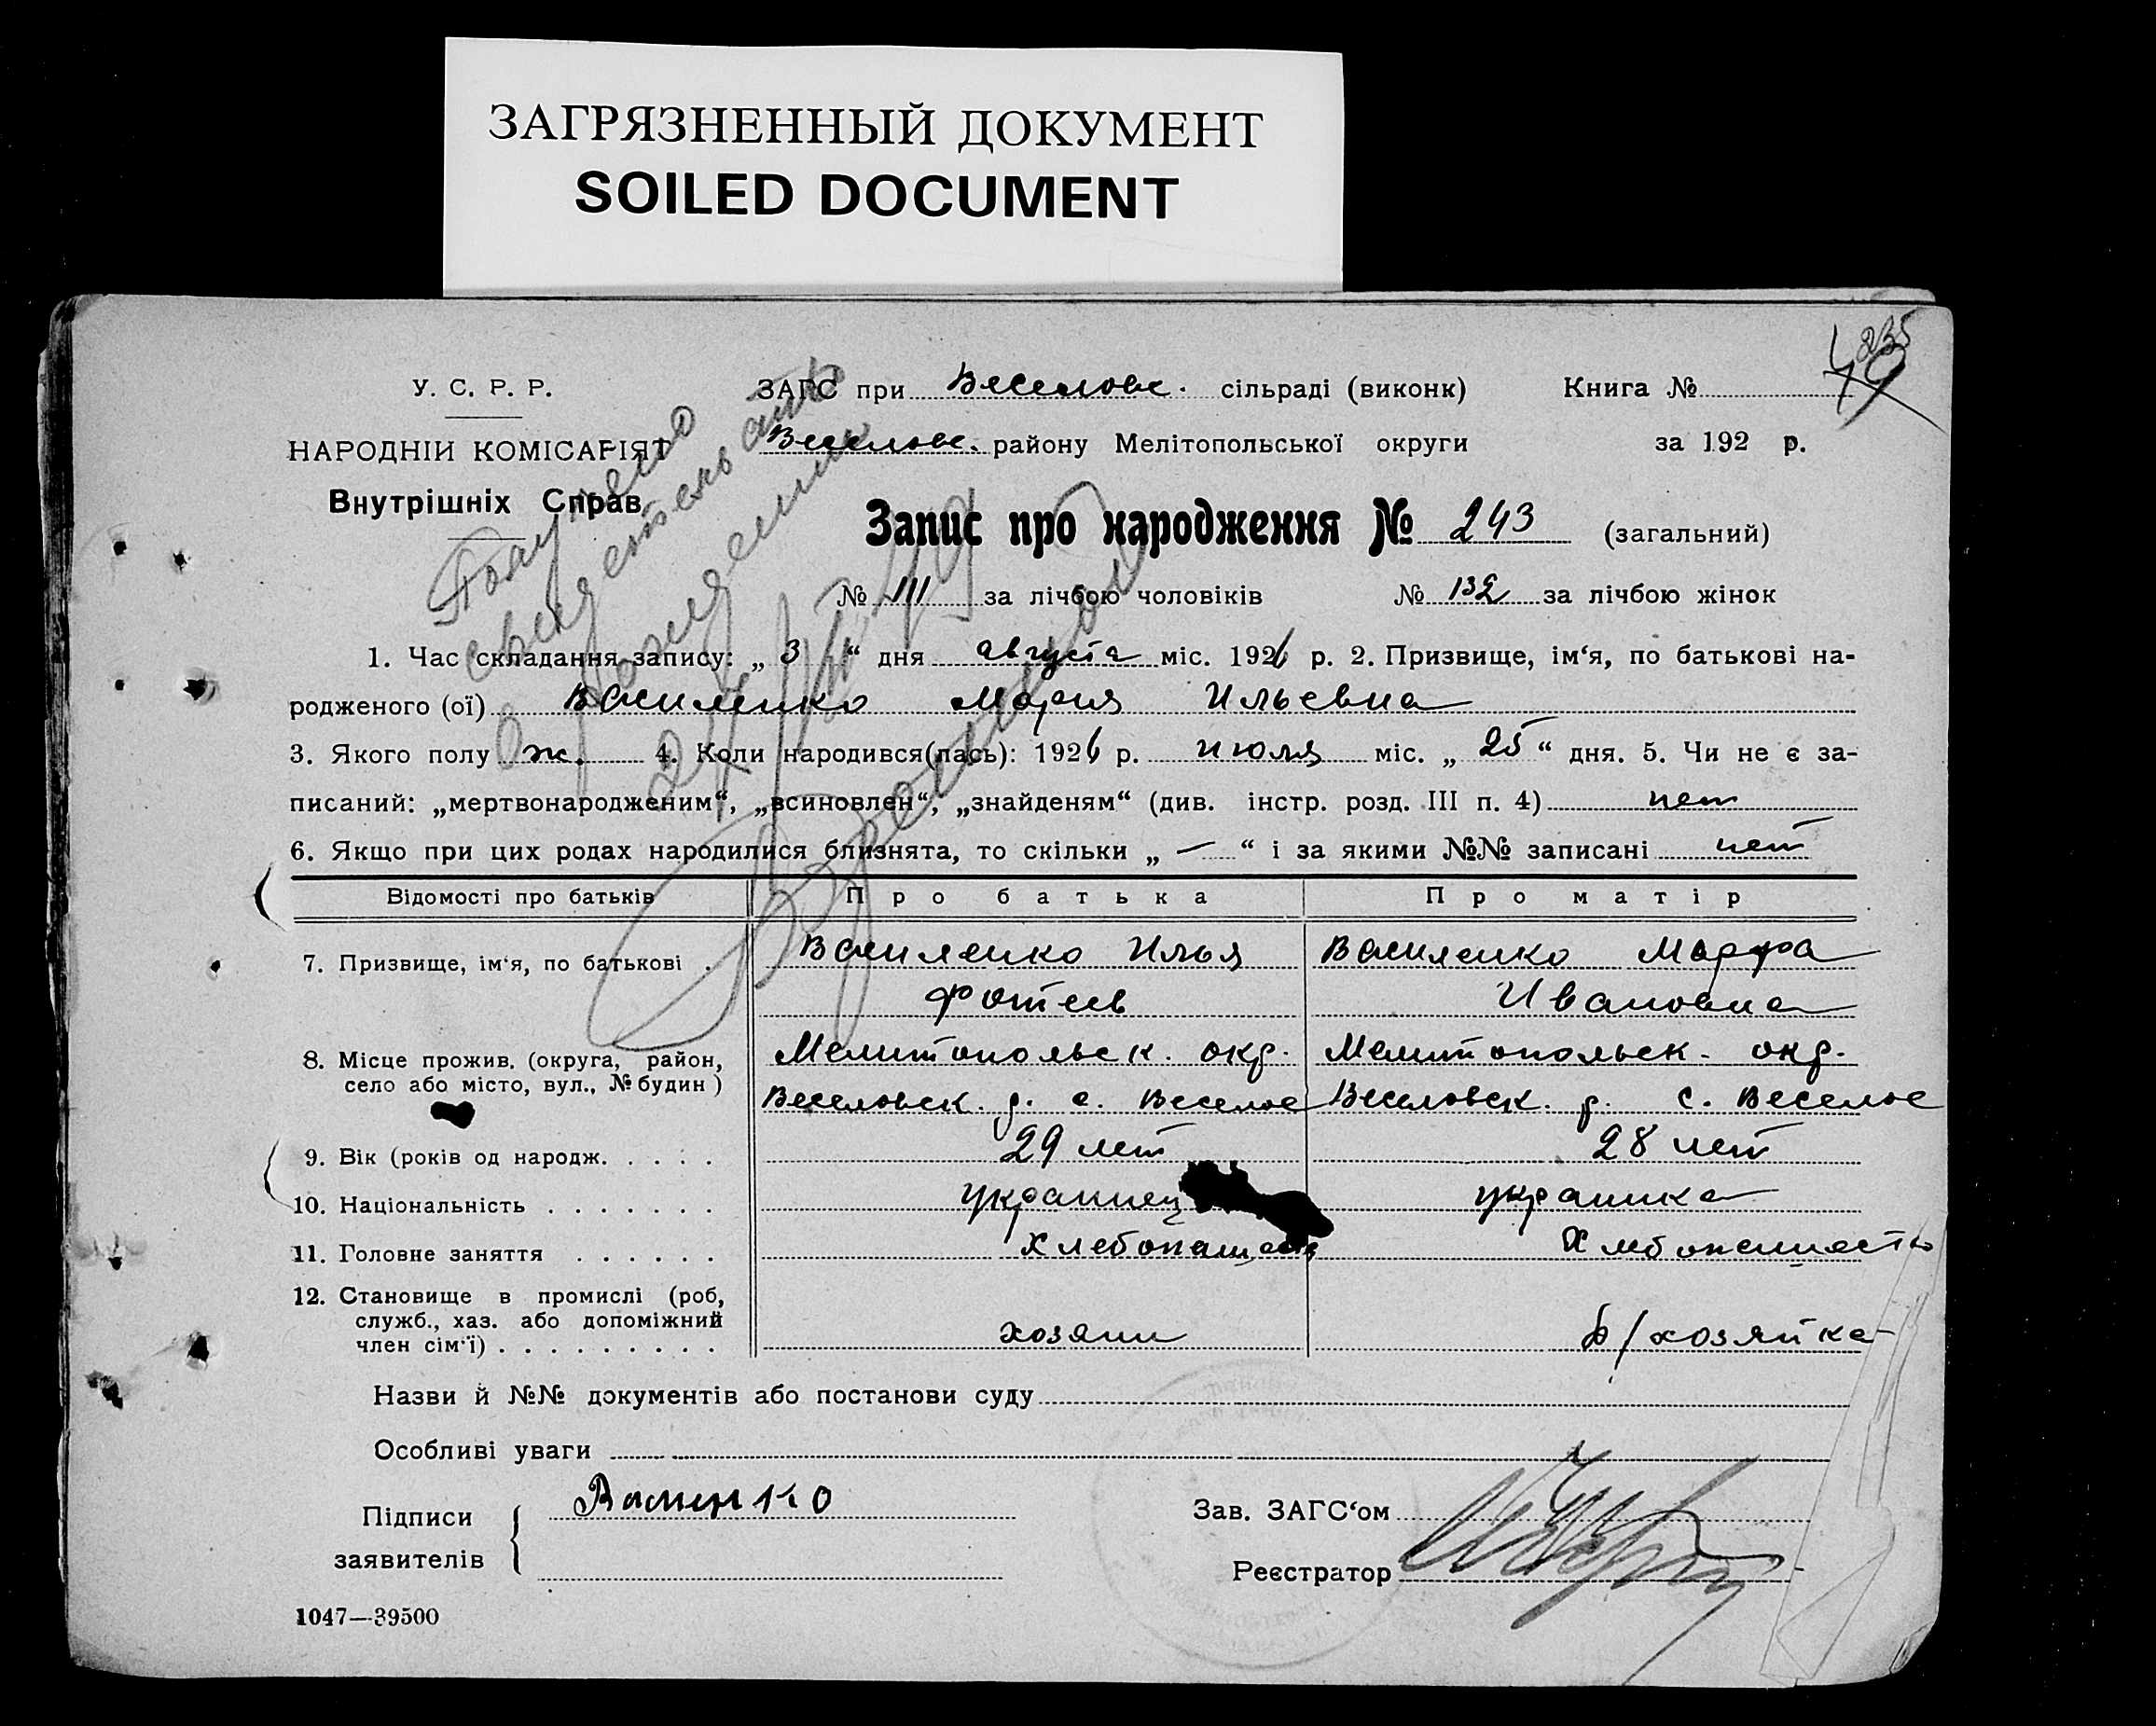 ЗАГРЯЗНЕННЫЙ ДОКУМЕНТ
SOILED DOCUMENT
235
49
У. С. Р. Р.
НАРОДНІЙ КОМІСАРІЯТ
Внутрішніх Справ
ЗАГС при Веселовс. сільраді (виконк) Книга №
Веселовс. району Мелітопольської округи за 192 р.
Запис про народження № 243 (загальний)
№ 111 за лічбою чоловіків № 132 за лічбою жінок
Получено
свидетельство
о рождении
1. Час складання запису: „ 3 “ дня августа міс. 1926 р. 2. Призвище, ім‘я, по батькові на-
родженого (ої) Василенко Мария Ильевна
3. Якого полу ж. 4. Коли народився(лась): 1926 р. июля міс. „ 25 “ дня. 5. Чи не є за-
писаний: „мертвонародженим“, „всиновлен“, „знайденям“ (див. інстр. розд. III п. 4) нет
6. Якщо при цих родах народилися близнята, то скільки „ — “ і за якими №№ записані нет
Відомості про батьків Про батька Про матір
7. Призвище, ім‘я, по батькові . Василенко Илья Василенко Марфа
Фотиев Ивановна
8. Місце прожив. (округа, район, Мелитопольск. окр. Мелитопольск. окр.
село або місто, вул., № будин ) Веселовск. р. с. Веселое Веселовск. р. с. Веселое
9. Вік (років од народж. . . . . 29 лет 28 лет
10. Національність . . . . . . . украинец украинка
11. Головне заняття . . . . . . Хлебопашество Хлебопашество
12. Становище в промислі (роб,
служб., хаз. або допоміжний
член сім‘ї) . . . . . . . . . хозяин д/хозяйка
Назви й №№ документів або постанови суду
Особливі уваги
Підписи
заявителів
Зав. ЗАГС‘ом
Реєстратор
1047—39500